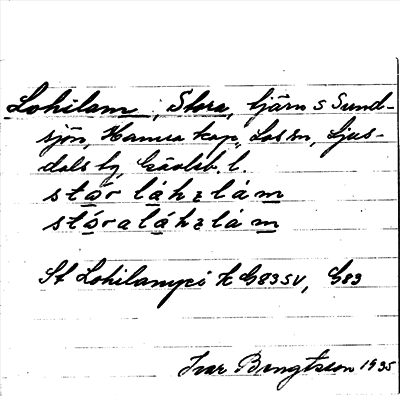 Lohilam, Stora, tjärn S Sund-
sjön, Hamra kap., Los sn, Ljus-
dals tg, Gävleb. l.
stór láhɩlám
stóraláhɩlám
St Lohilampi K G83SV, G83
Ivar Bengtsson 1935